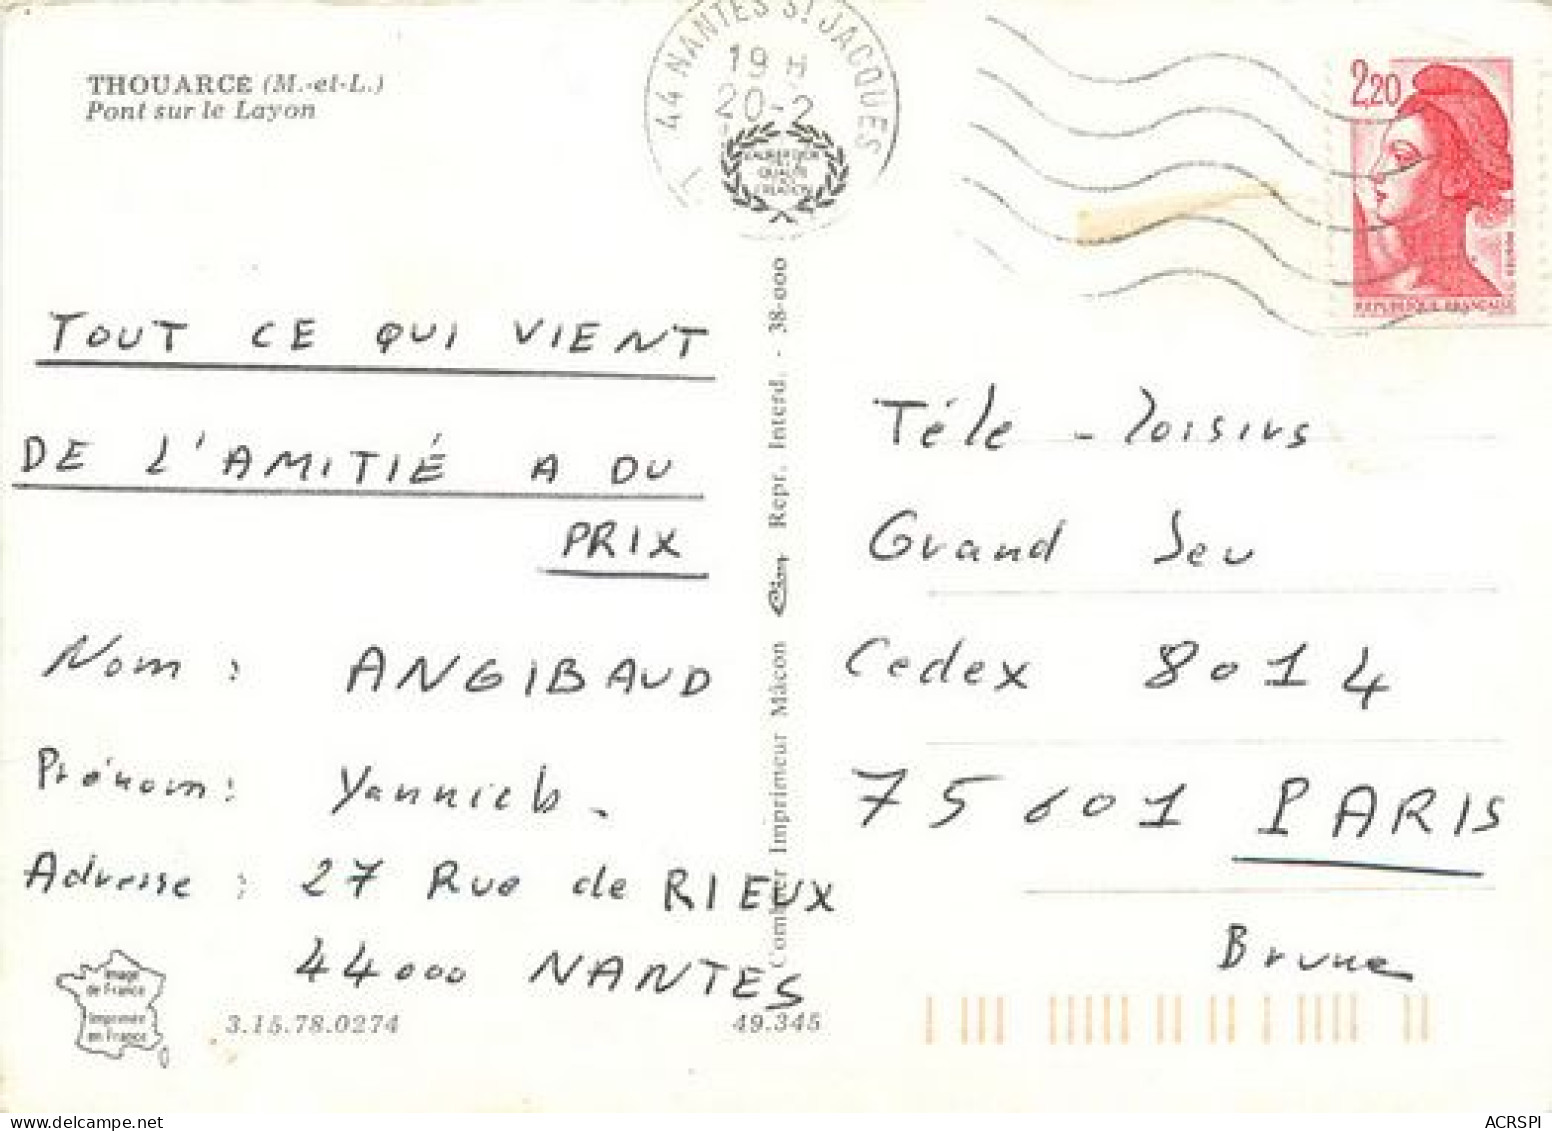 THOUARCE (M.-et-L.)
Pont sur le Layon
44 NANTES St JACQUES
19 H
20-2
QUALITE
CREATION
2,20
REPUBLIQUE FRANÇAISE
TOUT CE QUI VIENT
DE L'AMITIÉ A DU
PRIX
Nom : ANGIBAUD
Prénom : Yannick.
Adresse : 27 Rue de RIEUX
44000 NANTES
Image
de France
Imprimée
en France
3.15.78.0274
49.345
Combier Imprimeur Mâcon Cim Repr. Interd. - 38-000
Téle - Loisirs
Grand Jeu
Cedex 8014
75601 PARIS
Brune
ACRSPI